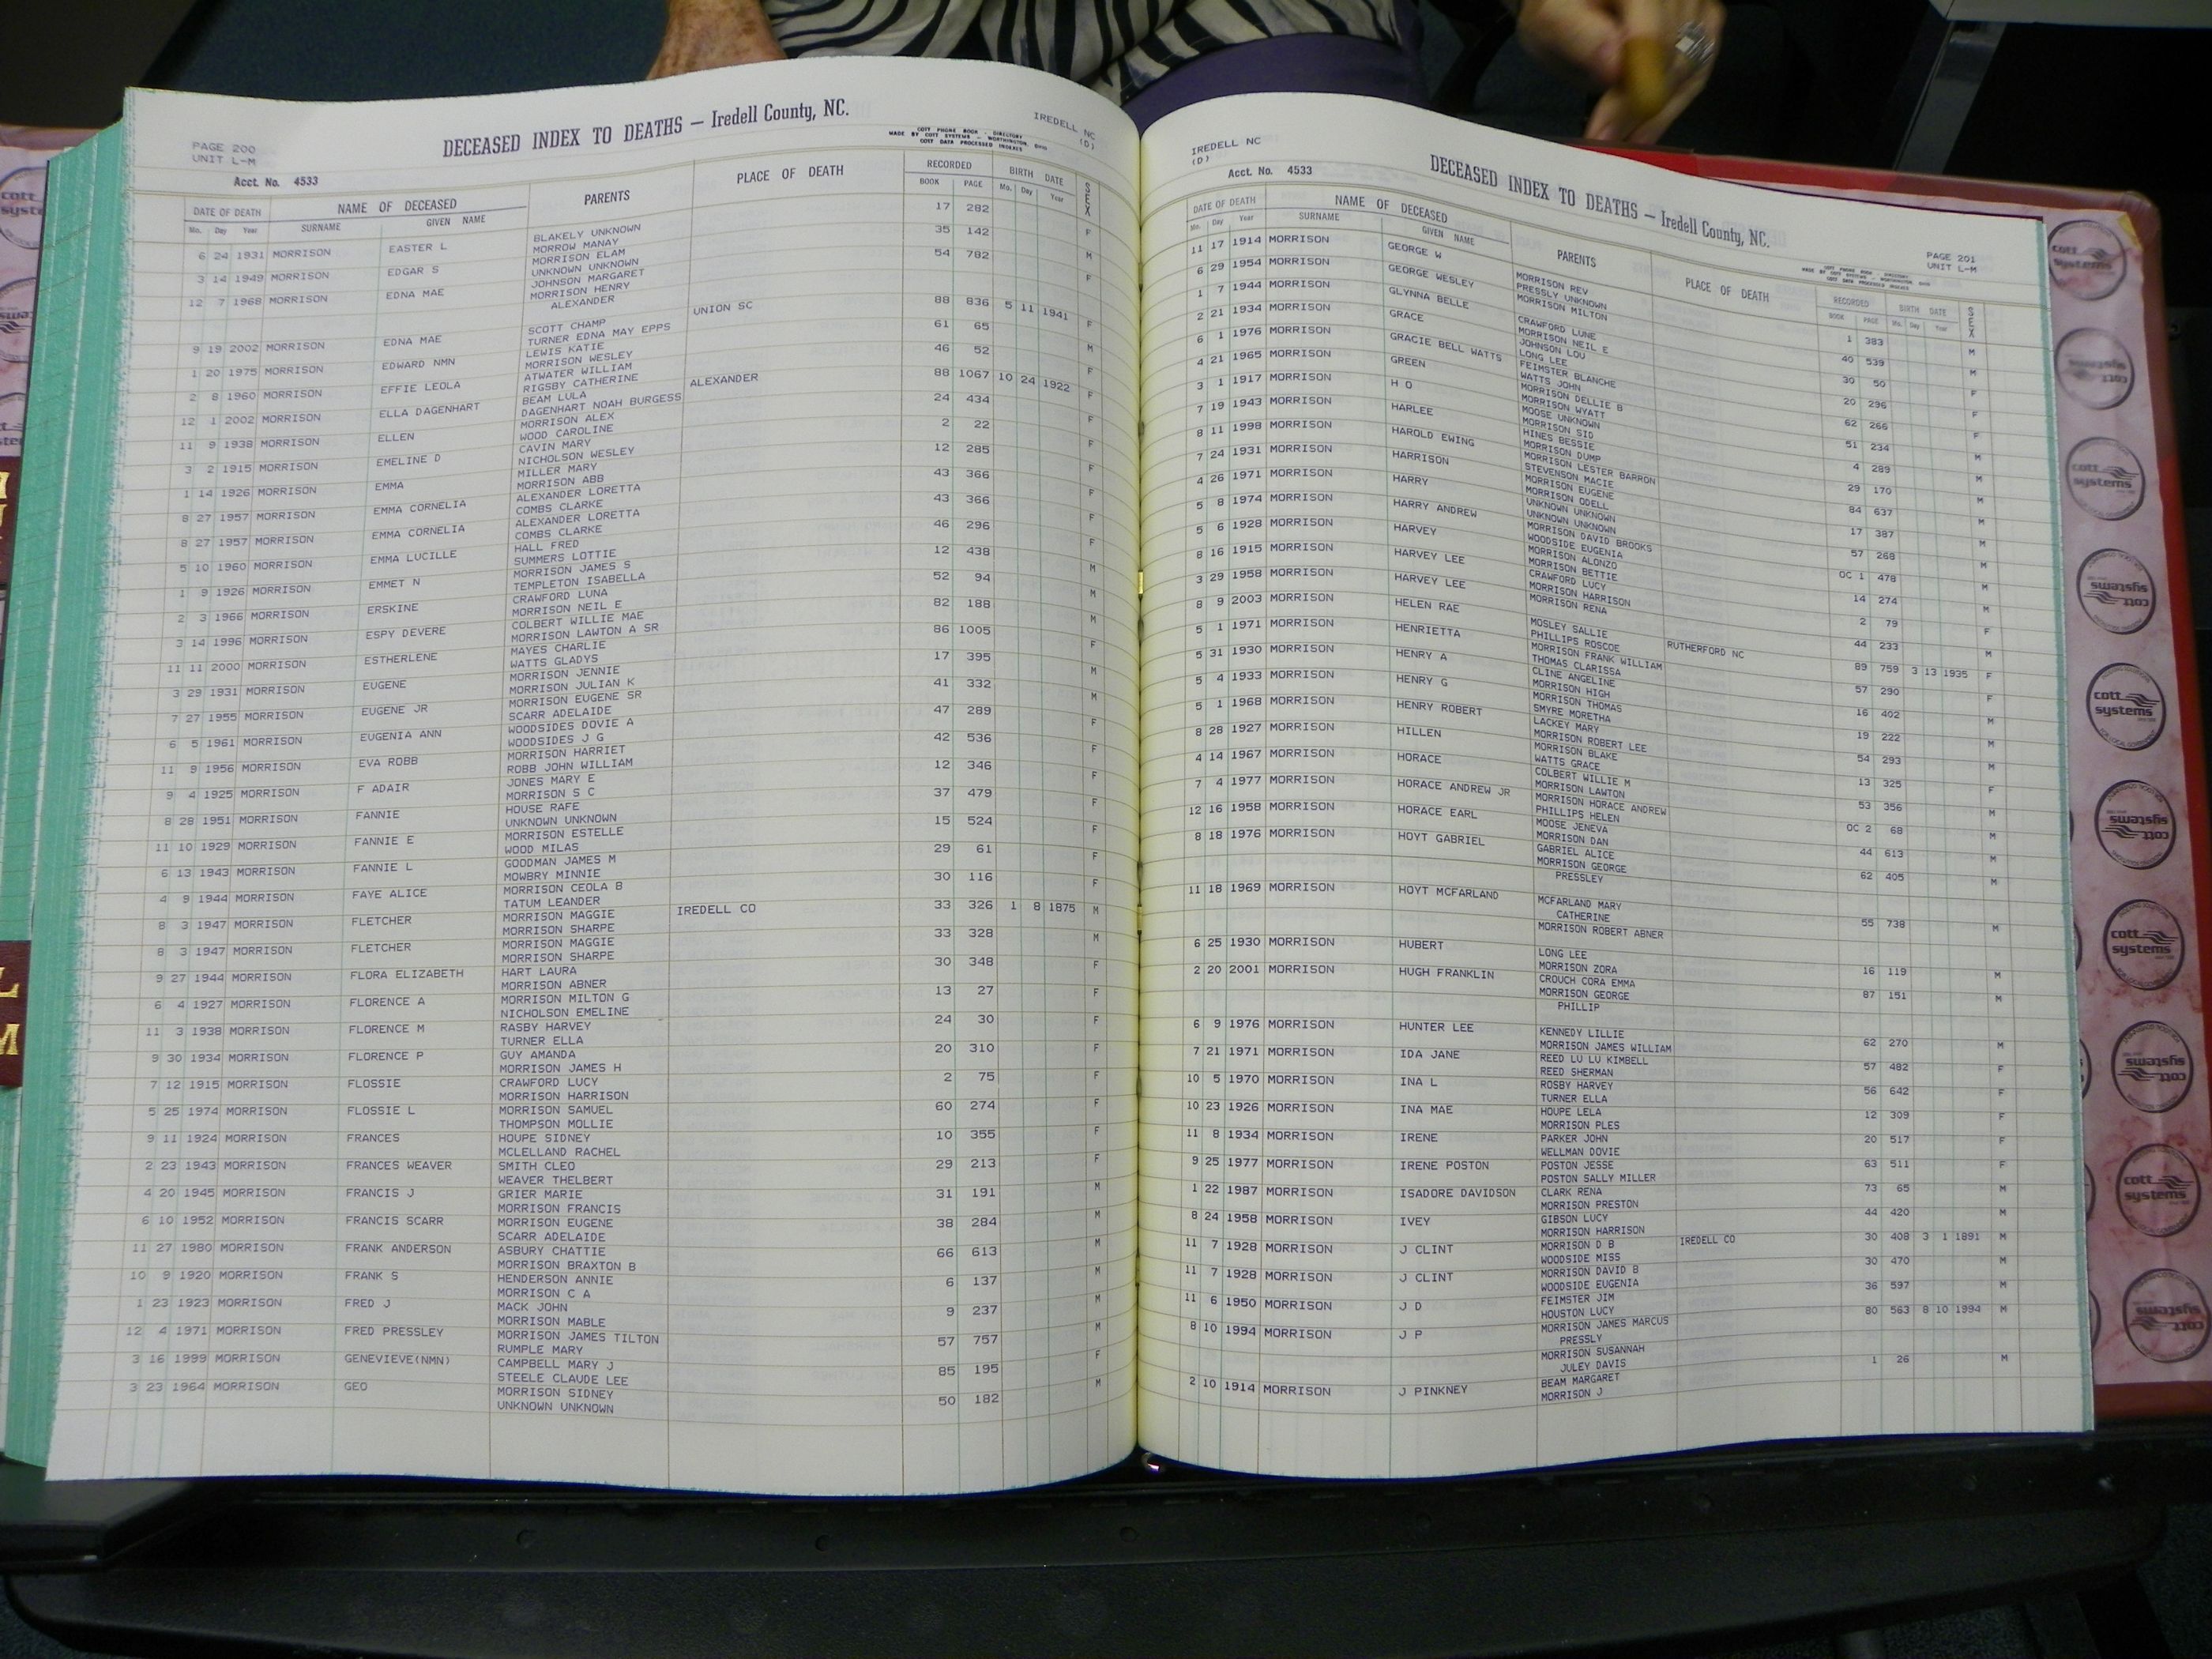 PAGE 200
UNIT L-M
DECEASED INDEX TO DEATHS — Iredell County, NC.
COTT PHONE BOOK - DIRECTORY
MADE BY COTT SYSTEMS - WORTHINGTON, OHIO
COTT DATA PROCESSED INDEXES
IREDELL NC
(D)
Acct. No. 4533
DATE OF DEATH NAME OF DECEASED PARENTS PLACE OF DEATH RECORDED BIRTH DATE SEX
Mo. Day Year SURNAME GIVEN NAME BOOK PAGE Mo. Day Year
6 24 1931 MORRISON EASTER L BLAKELY UNKNOWN 17 282 F
MORROW MANAY
3 14 1949 MORRISON EDGAR S MORRISON ELAM 35 142 M
UNKNOWN UNKNOWN
12 7 1968 MORRISON EDNA MAE JOHNSON MARGARET 54 782 F
MORRISON HENRY
ALEXANDER
9 19 2002 MORRISON EDNA MAE SCOTT CHAMP UNION SC 88 836 5 11 1941 F
TURNER EDNA MAY EPPS
1 20 1975 MORRISON EDWARD NMN LEWIS KATIE 61 65 M
MORRISON WESLEY
2 8 1960 MORRISON EFFIE LEOLA ATWATER WILLIAM 46 52 F
RIGSBY CATHERINE
12 1 2002 MORRISON ELLA DAGENHART BEAM LULA ALEXANDER 88 1067 10 24 1922 F
DAGENHART NOAH BURGESS
11 9 1938 MORRISON ELLEN MORRISON ALEX 24 434 F
WOOD CAROLINE
3 2 1915 MORRISON EMELINE D CAVIN MARY 2 22 F
NICHOLSON WESLEY
1 14 1926 MORRISON EMMA MILLER MARY 12 285 F
MORRISON ABB
8 27 1957 MORRISON EMMA CORNELIA ALEXANDER LORETTA 43 366 F
COMBS CLARKE
8 27 1957 MORRISON EMMA CORNELIA ALEXANDER LORETTA 43 366 F
COMBS CLARKE
5 10 1960 MORRISON EMMA LUCILLE HALL FRED 46 296 F
SUMMERS LOTTIE
1 9 1926 MORRISON EMMET N MORRISON JAMES S 12 438 M
TEMPLETON ISABELLA
2 3 1966 MORRISON ERSKINE CRAWFORD LUNA 52 94 M
MORRISON NEIL E
3 14 1996 MORRISON ESPY DEVERE COLBERT WILLIE MAE 82 188 M
MORRISON LAWTON A SR
11 11 2000 MORRISON ESTHERLENE MAYES CHARLIE 86 1005
WATTS GLADYS
3 29 1931 MORRISON EUGENE MORRISON JENNIE 17 395 M
MORRISON JULIAN K
7 27 1955 MORRISON EUGENE JR MORRISON EUGENE SR 41 332 M
SCARR ADELAIDE
6 5 1961 MORRISON EUGENIA ANN WOODSIDES DOVIE A 47 289 F
WOODSIDES J G
11 9 1956 MORRISON EVA ROBB MORRISON HARRIET 42 536 F
ROBB JOHN WILLIAM
9 4 1925 MORRISON F ADAIR JONES MARY E 12 346 F
MORRISON S C
8 28 1951 MORRISON FANNIE HOUSE RAFE 37 479 F
UNKNOWN UNKNOWN
11 10 1929 MORRISON FANNIE E MORRISON ESTELLE 15 524 F
WOOD MILAS
6 13 1943 MORRISON FANNIE L GOODMAN JAMES M 29 61 F
MOWBRY MINNIE
4 9 1944 MORRISON FAYE ALICE MORRISON CEOLA B 30 116 F
TATUM LEANDER
8 3 1947 MORRISON FLETCHER MORRISON MAGGIE IREDELL CO 33 326 1 8 1875 M
MORRISON SHARPE
8 3 1947 MORRISON FLETCHER MORRISON MAGGIE 33 328 M
MORRISON SHARPE
9 27 1944 MORRISON FLORA ELIZABETH HART LAURA 30 348 F
MORRISON ABNER
6 4 1927 MORRISON FLORENCE A MORRISON MILTON G 13 27 F
NICHOLSON EMELINE
11 3 1938 MORRISON FLORENCE M RASBY HARVEY 24 30 F
TURNER ELLA
9 30 1934 MORRISON FLORENCE P GUY AMANDA 20 310 F
MORRISON JAMES H
7 12 1915 MORRISON FLOSSIE CRAWFORD LUCY 2 75 F
MORRISON HARRISON
5 25 1974 MORRISON FLOSSIE L MORRISON SAMUEL 60 274 F
THOMPSON MOLLIE
9 11 1924 MORRISON FRANCES HOUPE SIDNEY 10 355 F
MCLELLAND RACHEL
2 23 1943 MORRISON FRANCES WEAVER SMITH CLEO 29 213 F
WEAVER THELBERT
4 20 1945 MORRISON FRANCIS J GRIER MARIE 31 191 M
MORRISON FRANCIS
6 10 1952 MORRISON FRANCIS SCARR MORRISON EUGENE 38 284 M
SCARR ADELAIDE
11 27 1980 MORRISON FRANK ANDERSON ASBURY CHATTIE 66 613 M
MORRISON BRAXTON B
10 9 1920 MORRISON FRANK S HENDERSON ANNIE 6 137 M
MORRISON C A
1 23 1923 MORRISON FRED J MACK JOHN 9 237 M
MORRISON MABLE
12 4 1971 MORRISON FRED PRESSLEY MORRISON JAMES TILTON 57 757 M
RUMPLE MARY
3 16 1999 MORRISON GENEVIEVE(NMN) CAMPBELL MARY J 85 195 F
STEELE CLAUDE LEE
3 23 1964 MORRISON GEO MORRISON SIDNEY 50 182 M
UNKNOWN UNKNOWN
IREDELL NC
(D)
DECEASED INDEX TO DEATHS — Iredell County, NC.
Acct. No. 4533
PAGE 201
UNIT L-M
DATE OF DEATH NAME OF DECEASED PARENTS PLACE OF DEATH RECORDED BIRTH DATE SEX
Mo. Day Year SURNAME GIVEN NAME BOOK PAGE Mo. Day Year
11 17 1914 MORRISON GEORGE W MORRISON REV 1 383 M
PRESSLY UNKNOWN
6 29 1954 MORRISON GEORGE WESLEY MORRISON MILTON 40 539 M
1 7 1944 MORRISON GLYNNA BELLE CRAWFORD LUNE 30 50 F
MORRISON NEIL E
2 21 1934 MORRISON GRACE JOHNSON LOU 20 296 F
LONG LEE
6 1 1976 MORRISON GRACIE BELL WATTS FEIMSTER BLANCHE 62 266 F
WATTS JOHN
4 21 1965 MORRISON GREEN MORRISON DELLIE B 51 234 M
MORRISON WYATT
3 1 1917 MORRISON H O MOOSE UNKNOWN 4 289 M
MORRISON SID
7 19 1943 MORRISON HARLEE HINES BESSIE 29 170 M
MORRISON DUMP
8 11 1998 MORRISON HAROLD EWING MORRISON LESTER BARRON 84 637 M
STEVENSON MACIE
7 24 1931 MORRISON HARRISON MORRISON EUGENE 17 387 M
MORRISON ODELL
4 26 1971 MORRISON HARRY UNKNOWN UNKNOWN 57 268 M
UNKNOWN UNKNOWN
5 8 1974 MORRISON HARRY ANDREW MORRISON DAVID BROOKS OC 1 478 M
WOODSIDE EUGENIA
5 6 1928 MORRISON HARVEY MORRISON ALONZO 14 274 M
MORRISON BETTIE
8 16 1915 MORRISON HARVEY LEE CRAWFORD LUCY 2 79 F
MORRISON HARRISON
3 29 1958 MORRISON HARVEY LEE MORRISON RENA 44 233 M
8 9 2003 MORRISON HELEN RAE MOSLEY SALLIE RUTHERFORD NC 89 759 3 13 1935 F
PHILLIPS ROSCOE
5 1 1971 MORRISON HENRIETTA MORRISON FRANK WILLIAM 57 290 F
THOMAS CLARISSA
5 31 1930 MORRISON HENRY A CLINE ANGELINE 16 402 M
MORRISON HIGH
5 4 1933 MORRISON HENRY G MORRISON THOMAS 19 222 M
SMYRE MORETHA
5 1 1968 MORRISON HENRY ROBERT LACKEY MARY 54 293 M
MORRISON ROBERT LEE
8 28 1927 MORRISON HILLEN MORRISON BLAKE 13 325 F
WATTS GRACE
4 14 1967 MORRISON HORACE COLBERT WILLIE M 53 356 M
MORRISON LAWTON
7 4 1977 MORRISON HORACE ANDREW JR MORRISON HORACE ANDREW OC 2 68 M
PHILLIPS HELEN
12 16 1958 MORRISON HORACE EARL MOOSE JENEVA 44 613 M
MORRISON DAN
8 18 1976 MORRISON HOYT GABRIEL GABRIEL ALICE 62 405 M
MORRISON GEORGE
PRESSLEY
11 18 1969 MORRISON HOYT MCFARLAND MCFARLAND MARY 55 738 M
CATHERINE
MORRISON ROBERT ABNER
6 25 1930 MORRISON HUBERT LONG LEE 16 119 M
MORRISON ZORA
2 20 2001 MORRISON HUGH FRANKLIN CROUCH CORA EMMA 87 151 M
MORRISON GEORGE
PHILLIP
6 9 1976 MORRISON HUNTER LEE KENNEDY LILLIE 62 270 M
MORRISON JAMES WILLIAM
7 21 1971 MORRISON IDA JANE REED LU LU KIMBELL 57 482 F
REED SHERMAN
10 5 1970 MORRISON INA L ROSBY HARVEY 56 642 F
TURNER ELLA
10 23 1926 MORRISON INA MAE HOUPE LELA 12 309 F
MORRISON PLES
11 8 1934 MORRISON IRENE PARKER JOHN 20 517 F
WELLMAN DOVIE
9 25 1977 MORRISON IRENE POSTON POSTON JESSE 63 511 F
POSTON SALLY MILLER
1 22 1987 MORRISON ISADORE DAVIDSON CLARK RENA 73 65 M
MORRISON PRESTON
8 24 1958 MORRISON IVEY GIBSON LUCY 44 420 M
MORRISON HARRISON
11 7 1928 MORRISON J CLINT MORRISON D B IREDELL CO 30 408 3 1 1891 M
WOODSIDE MISS
11 7 1928 MORRISON J CLINT MORRISON DAVID B 30 470 M
WOODSIDE EUGENIA
11 6 1950 MORRISON J D FEIMSTER JIM 36 597 M
HOUSTON LUCY
8 10 1994 MORRISON J P MORRISON JAMES MARCUS 80 563 8 10 1994 M
PRESSLY
MORRISON SUSANNAH
JULEY DAVIS
2 10 1914 MORRISON J PINKNEY BEAM MARGARET 1 26 M
MORRISON J
cott systems